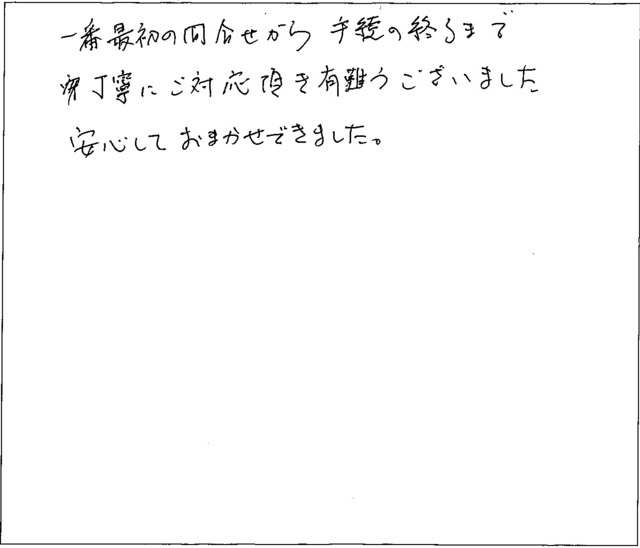 一番最初の問合せから手続の終るまで
丁寧にご対応頂き有難うございました
安心しておまかせできました。